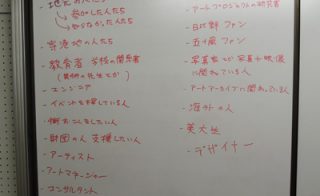 - 地元の人たち
参加した人たち
知らなかった人たち
- 京浜地の人たち
- 教育者 学校の関係者
(美術の先生とか)
- エンジニア
- イベントを探している人
- 働きたい人
- 財団の人 支援したい人
- アーティスト
- アートマネージャー
- コンサルタント
- アートプロジェクトの研究者
- 日比野ファン
- 五十嵐ファン
- 写真家とか写真や映像
に関わっている人
- アートアーカイブに関わっている人
- 海外の人
- 美大生
- デザイナー